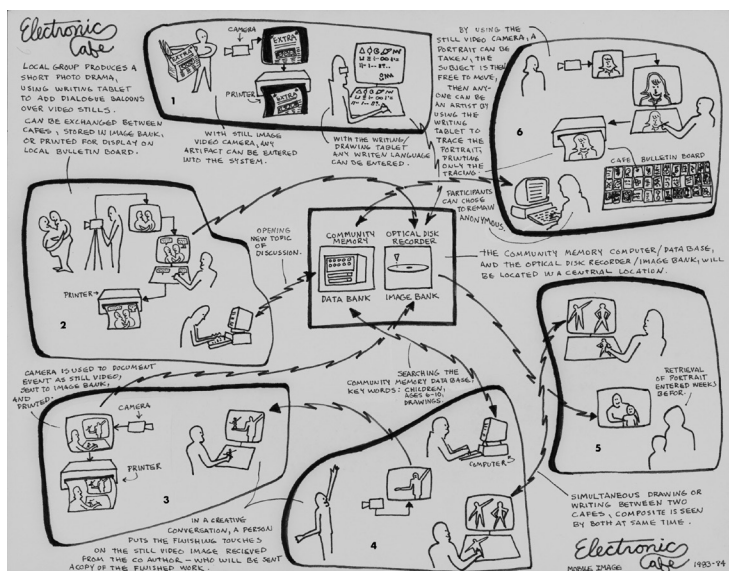 Electronic
Cafe
LOCAL GROUP PRODUCES A
SHORT PHOTO DRAMA,
USING WRITING TABLET
TO ADD DIALOGUE BALOONS
OVER VIDEO STILLS.
CAN BE EXCHANGED BETWEEN
CAFES, STORED IN IMAGE BANK,
OR PRINTED FOR DISPLAY ON
LOCAL BULLETIN BOARD.
CAMERA
EXTRA
EXTRA
PRINTER
EXTRA
1
WITH STILL IMAGE
VIDEO CAMERA, ANY
ARTIFACT CAN BE ENTERED
INTO THE SYSTEM.
WITH THE WRITING/
DRAWING TABLET
ANY WRITEN LANGUAGE
CAN BE ENTERED.
BY USING THE
STILL VIDEO CAMERA, A
PORTRAIT CAN BE
TAKEN, THE
SUBJECT IS THEN
FREE TO MOVE,
THEN ANY-
ONE CAN BE
AN ARTIST BY
USING THE
WRITING
TABLET TO
TRACE THE
PORTRAIT,
PRINTING
ONLY THE
TRACING.
6
CAFE BULLETIN BOARD
PARTICIPANTS
CAN CHOSE
TO REMAIN
ANONYMOUS.
OPENING
NEW TOPIC
OF
DISCUSSION.
COMMUNITY
MEMORY
DATA BANK
OPTICAL DISK
RECORDER
IMAGE BANK
THE COMMUNITY MEMORY COMPUTER/DATA BASE,
AND THE OPTICAL DISK RECORDER/IMAGE BANK, WILL
BE LOCATED IN A CENTRIAL LOCATION.
PRINTER
2
CAMERA IS USED TO DOCUMENT
EVENT AS STILL VIDEO,
SENT TO IMAGE BANK,
AND
PRINTED.
CAMERA
PRINTER
3
SEARCHING THE
COMMUNITY MEMORY DATA BASE,
KEY WORDS: CHILDREN,
AGES 6-10,
DRAWINGS.
COMPUTER
4
RETRIEVAL
OF PORTRAIT
ENTERED WEEKS
BEFOR.
5
IN A CREATIVE
CONVERSATION, A PERSON
PUTS THE FINISHING TOUCHES
ON THE STILL VIDEO IMAGE RECIEVED
FROM THE CO AUTHOR — WHO WILL BE SENT
A COPY OF THE FINISHED WORK.
SIMULTANEOUS DRAWING OR
WRITING BETWEEN TWO
CAFES, COMPOSITE IS SEEN
BY BOTH AT SAME TIME.
Electronic
Cafe
MOBILE IMAGE
1983-84